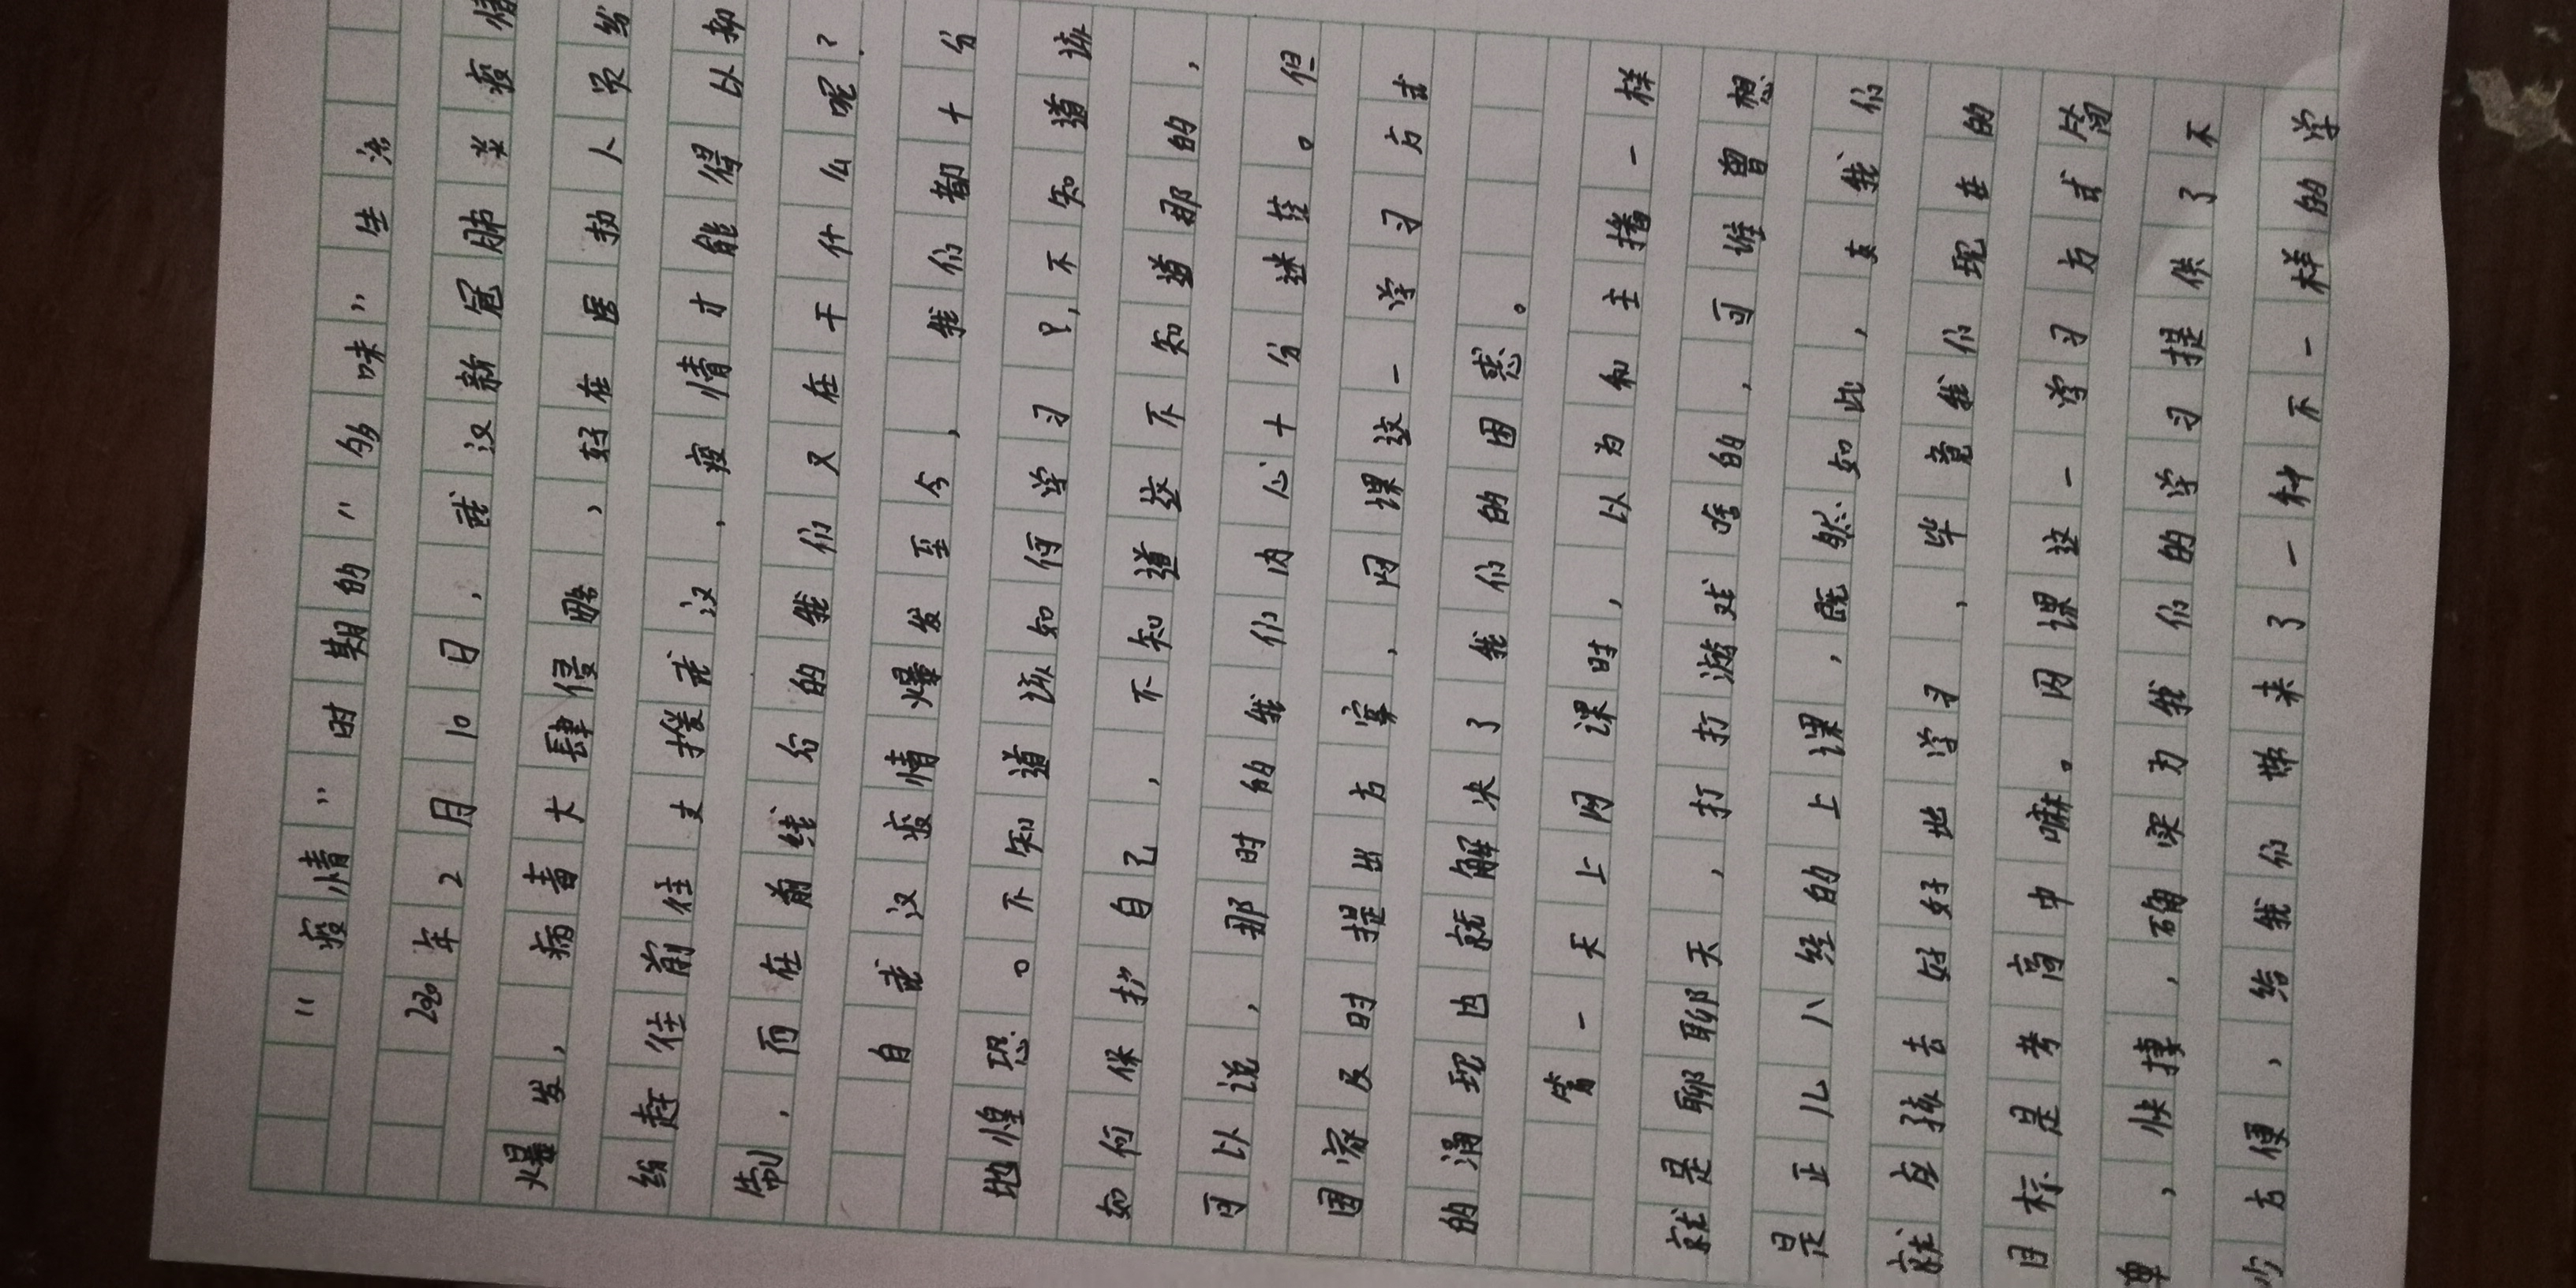 "疫情"时期的"够味"生活
2020年2月10日，武汉新冠肺炎疫情
爆发，病毒大肆侵略，好在医务人员纷
纷赶往前往支援武汉，疫情才能得以抑
制，而在前线的我们又在干什么呢？
自武汉疫情爆发至今，我们都十分
地惶恐。不知道该如何学习？，不知道该
如何保护自己，不知道这不知道那的，
可以说，那时的我们内心十分迷茫。但
国家及时提出方案，网课这一学习方式
的涌现也就解决了我们的困惑。
第一天上网课时，以为和主播一样
就是聊聊天，打打游戏啥的，可谁曾想
是正儿八经的上课，既然如此，我们
就应该去好好地学习，毕竟我们现在的
目标是考高中嘛。网课这一学习方式简
单，快捷，确实为我们的学习提供了不
少方便，给我们带来了一种不一样的学